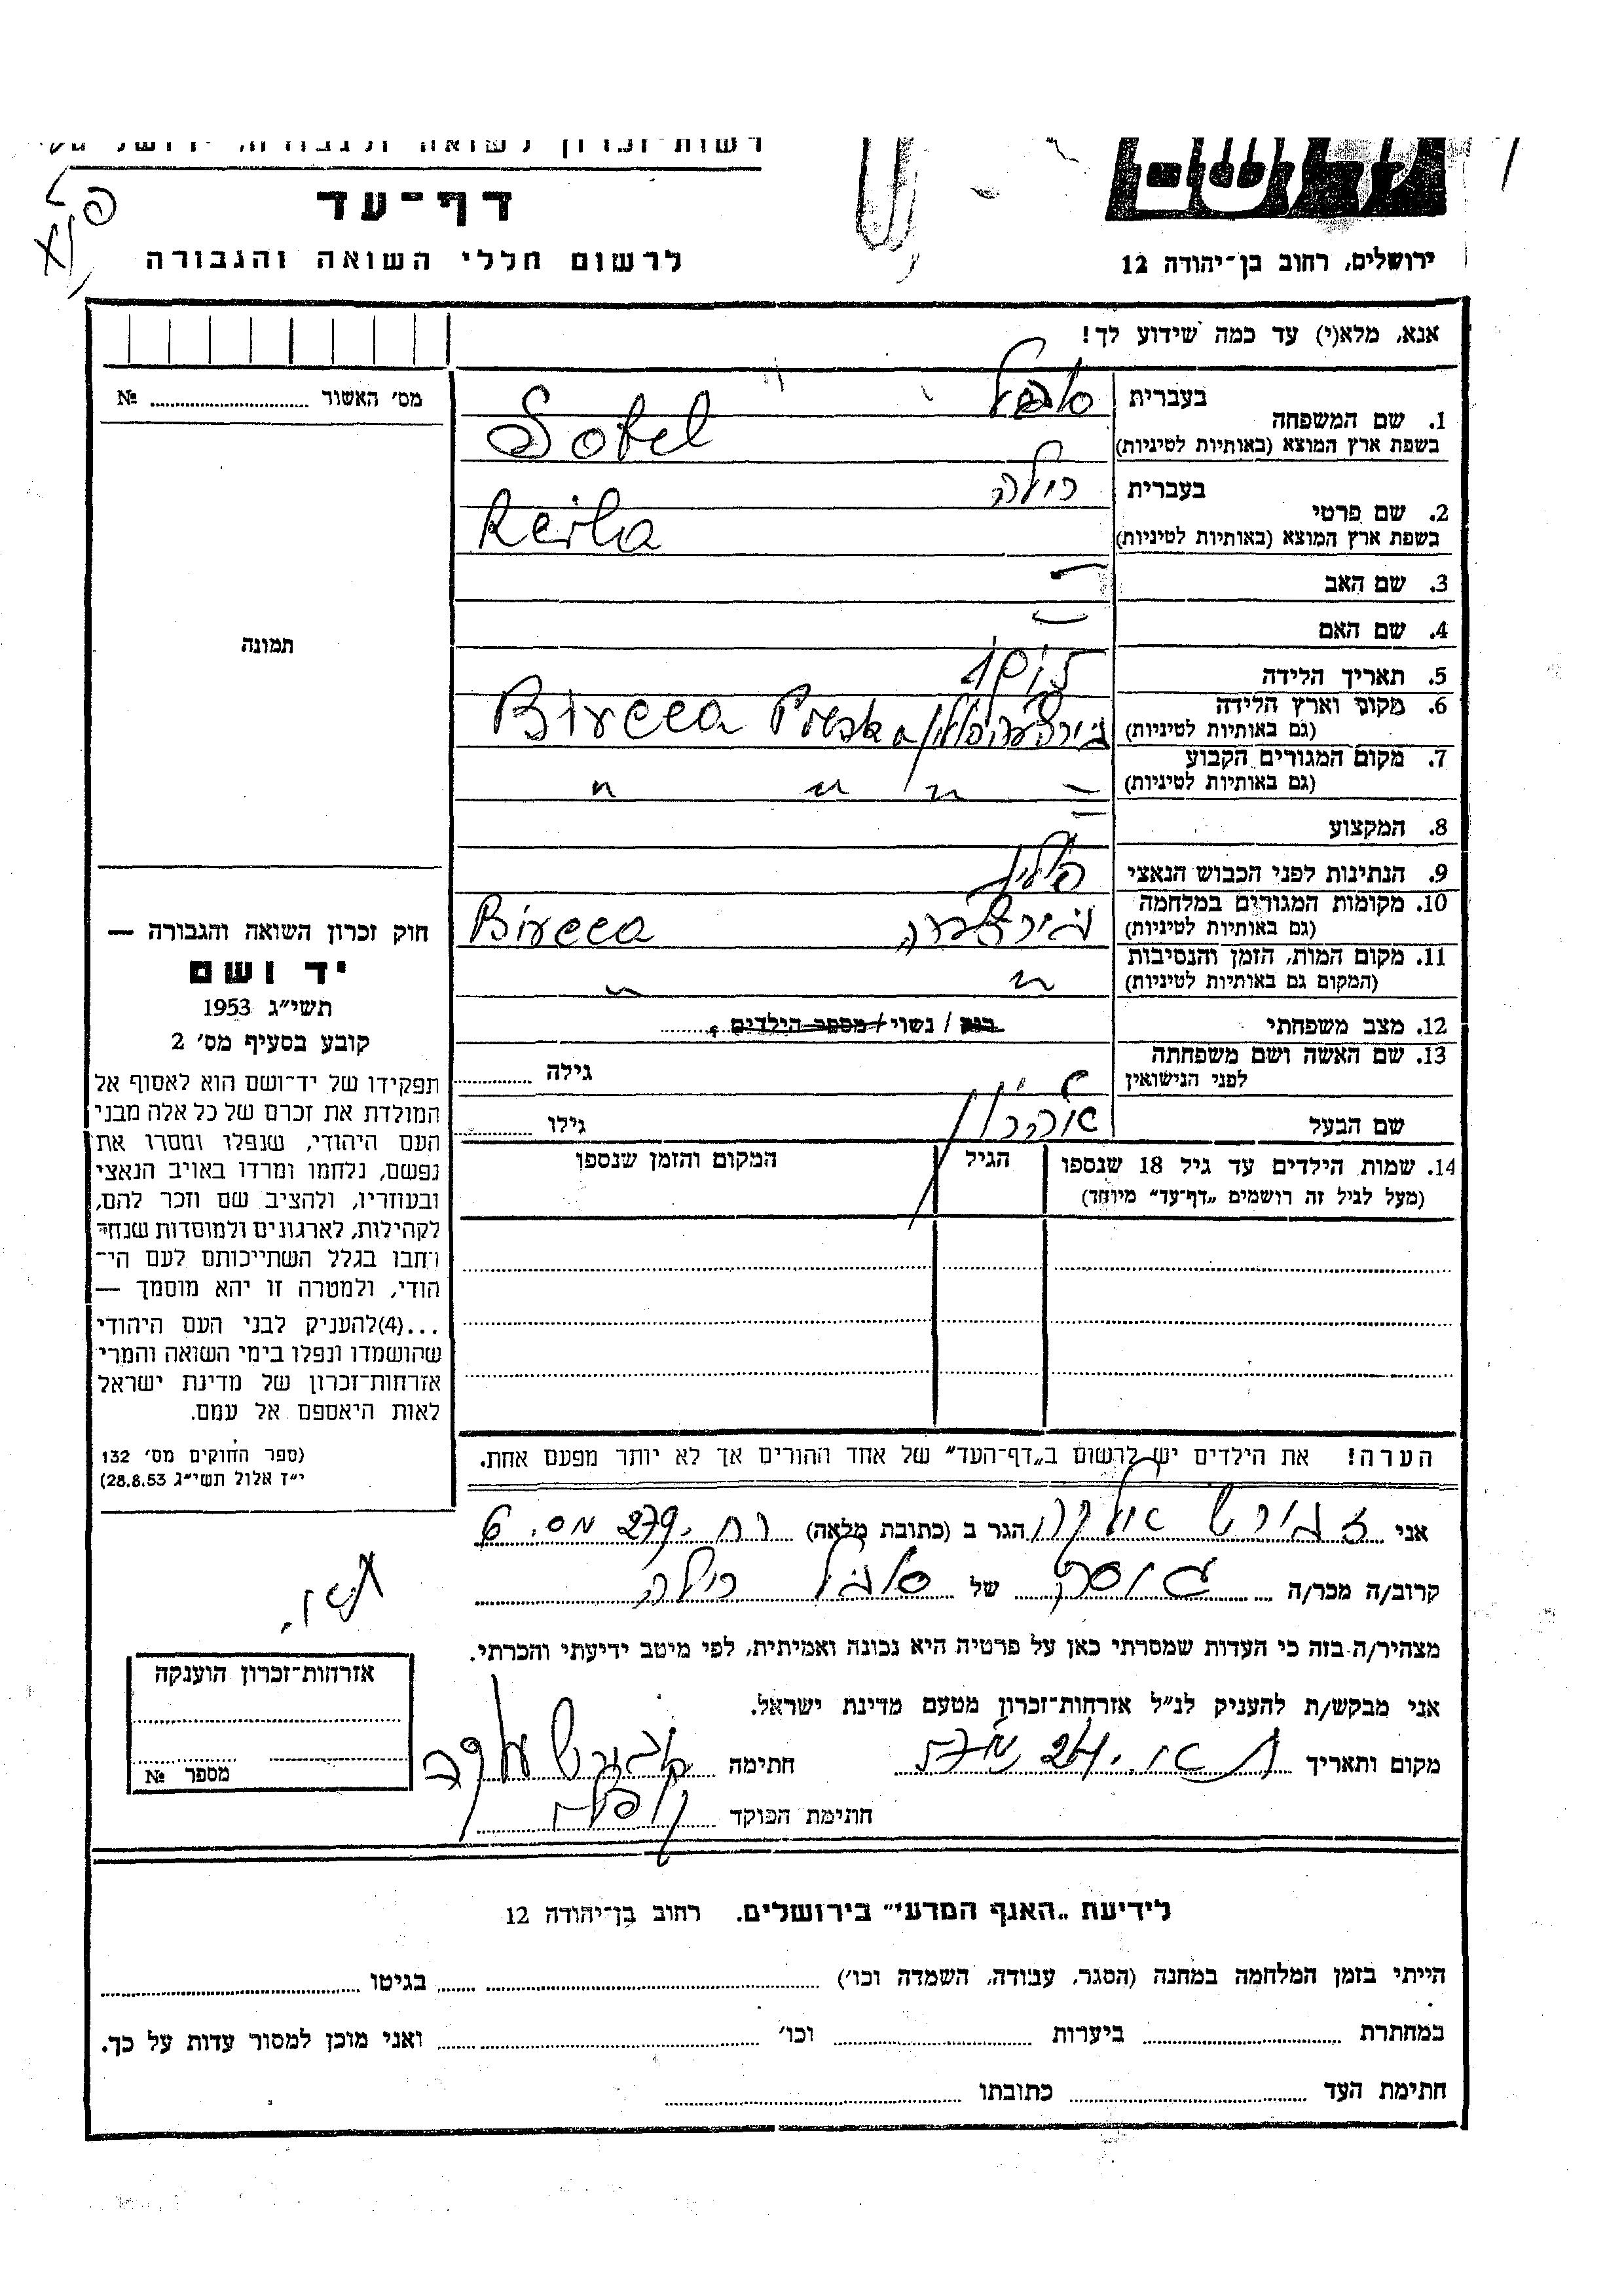 דף־עד
לרשום חללי השואה והגבורה
ירושלים, רחוב בן־יהודה 12
אנא, מלא(י) עד כמה שידוע לך!
מס׳ האשור № 
1. שם המשפחה
בעברית סובל
בשפת ארץ המוצא (באותיות לטיניות) Sobel
2. שם פרטי
בעברית רילה
בשפת ארץ המוצא (באותיות לטיניות) Reila
3. שם האב —
4. שם האם —
5. תאריך הלידה
6. מקום וארץ הלידה
(גם באותיות לטיניות) Bircea Polska
7. מקום המגורים הקבוע
(גם באותיות לטיניות) " " " "
8. המקצוע —
9. הנתינות לפני הכבוש הנאצי
10. מקומות המגורים במלחמה
(גם באותיות לטיניות) Bircea
11. מקום המות, הזמן והנסיבות
(המקום גם באותיות לטיניות) " "
12. מצב משפחתי רווק / נשוי / מספר הילדים
13. שם האשה ושם משפחתה
לפני הנישואין גילה
שם הבעל אהרון גילו
14. שמות הילדים עד גיל 18 שנספו הגיל המקום והזמן שנספו
(מעל לגיל זה רושמים „דף־עד״ מיוחד)
תמונה
חוק זכרון השואה והגבורה —
יד ושם
תשי״ג 1953
קובע בסעיף מס׳ 2
תפקידו של יד־ושם הוא לאסוף אל
המולדת את זכרם של כל אלה מבני
העם היהודי, שנפלו ומסרו את
נפשם, נלחמו ומרדו באויב הנאצי
ובעוזריו, ולהציב שם וזכר להם,
לקהילות, לארגונים ולמוסדות שנחר־
רחבו בגלל השתייכותם לעם הי־
הודי, ולמטרה זו יהא מוסמך —
...(4)להעניק לבני העם היהודי
שהושמדו ונפלו בימי השואה והמרי
אזרחות־זכרון של מדינת ישראל
לאות היאספם אל עמם.
(ספר החוקים מס׳ 132
י״ז אלול תשי״ג 28.8.53)
הערה! את הילדים יש לרשום ב„דף־העד״ של אחד ההורים אך לא יותר מפעם אחת.
אני הגר ב (כתובת מלאה) רח. 279 מס. 6
קרוב/ה מכר/ה של סובל רילה
מצהיר/ה בזה כי העדות שמסרתי כאן על פרטיה היא נכונה ואמיתית, לפי מיטב ידיעתי והכרתי.
אני מבקש/ת להעניק לנ״ל אזרחות־זכרון מטעם מדינת ישראל.
מקום ותאריך חתימה
חתימת הפוקד
אזרחות־זכרון הוענקה
מספר №
לידיעת „האגף המדעי״ בירושלים. רחוב בן־יהודה 12
הייתי בזמן המלחמה במחנה (הסגר, עבודה, השמדה וכו׳) בגיטו
במחתרת ביערות וכו׳ ואני מוכן למסור עדות על כך.
חתימת העד כתובתו